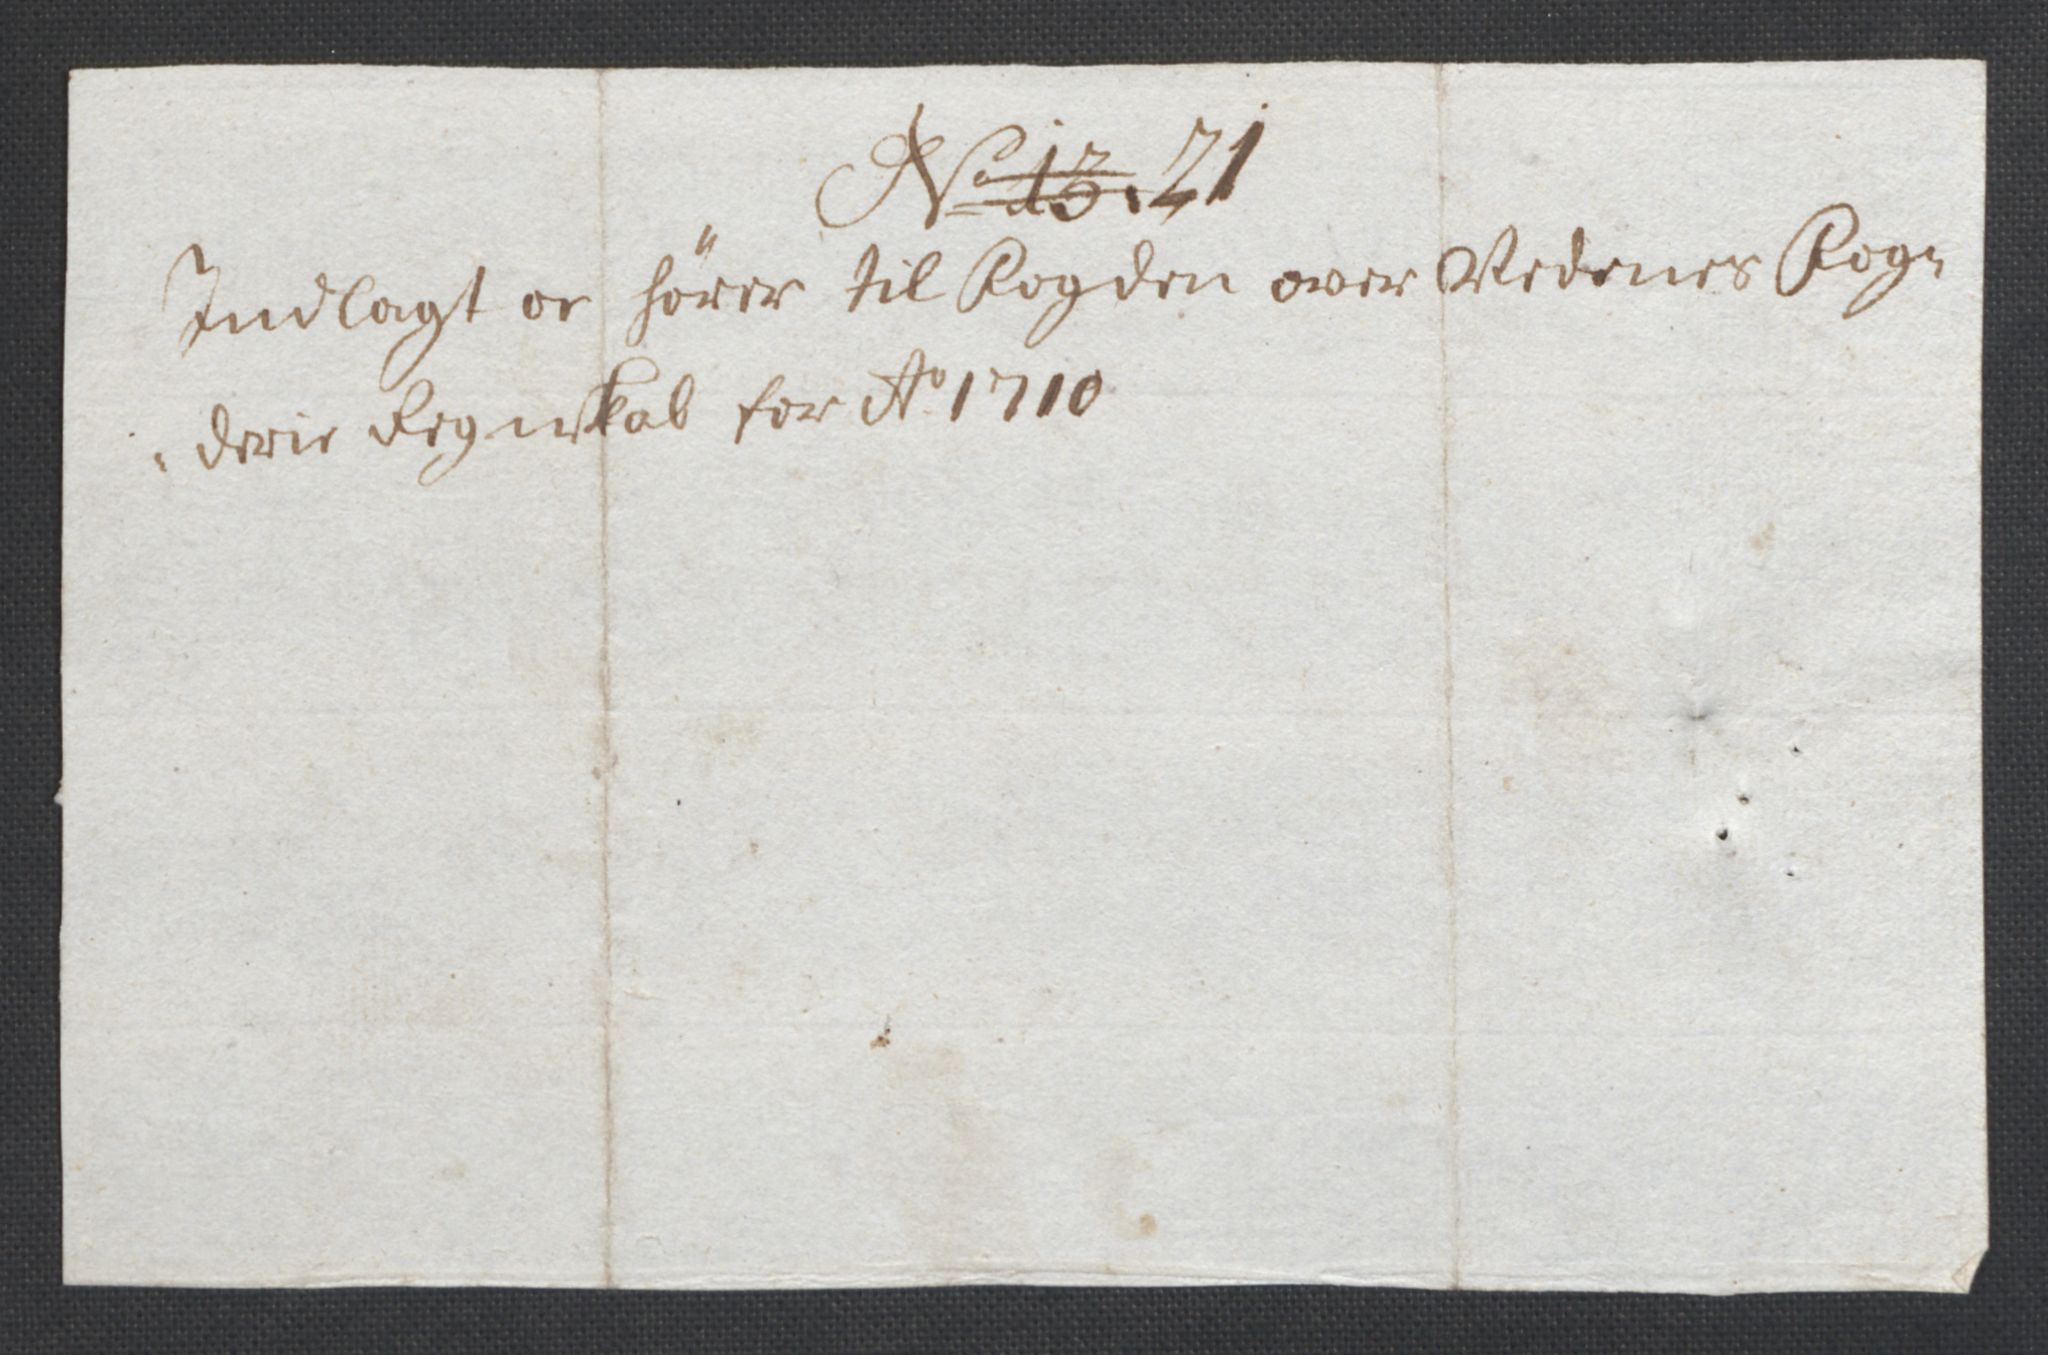 No 13. 21
Indlagt or hörer til Fogden over Nedenes Fog-
derie Regnskab for Ao 1710